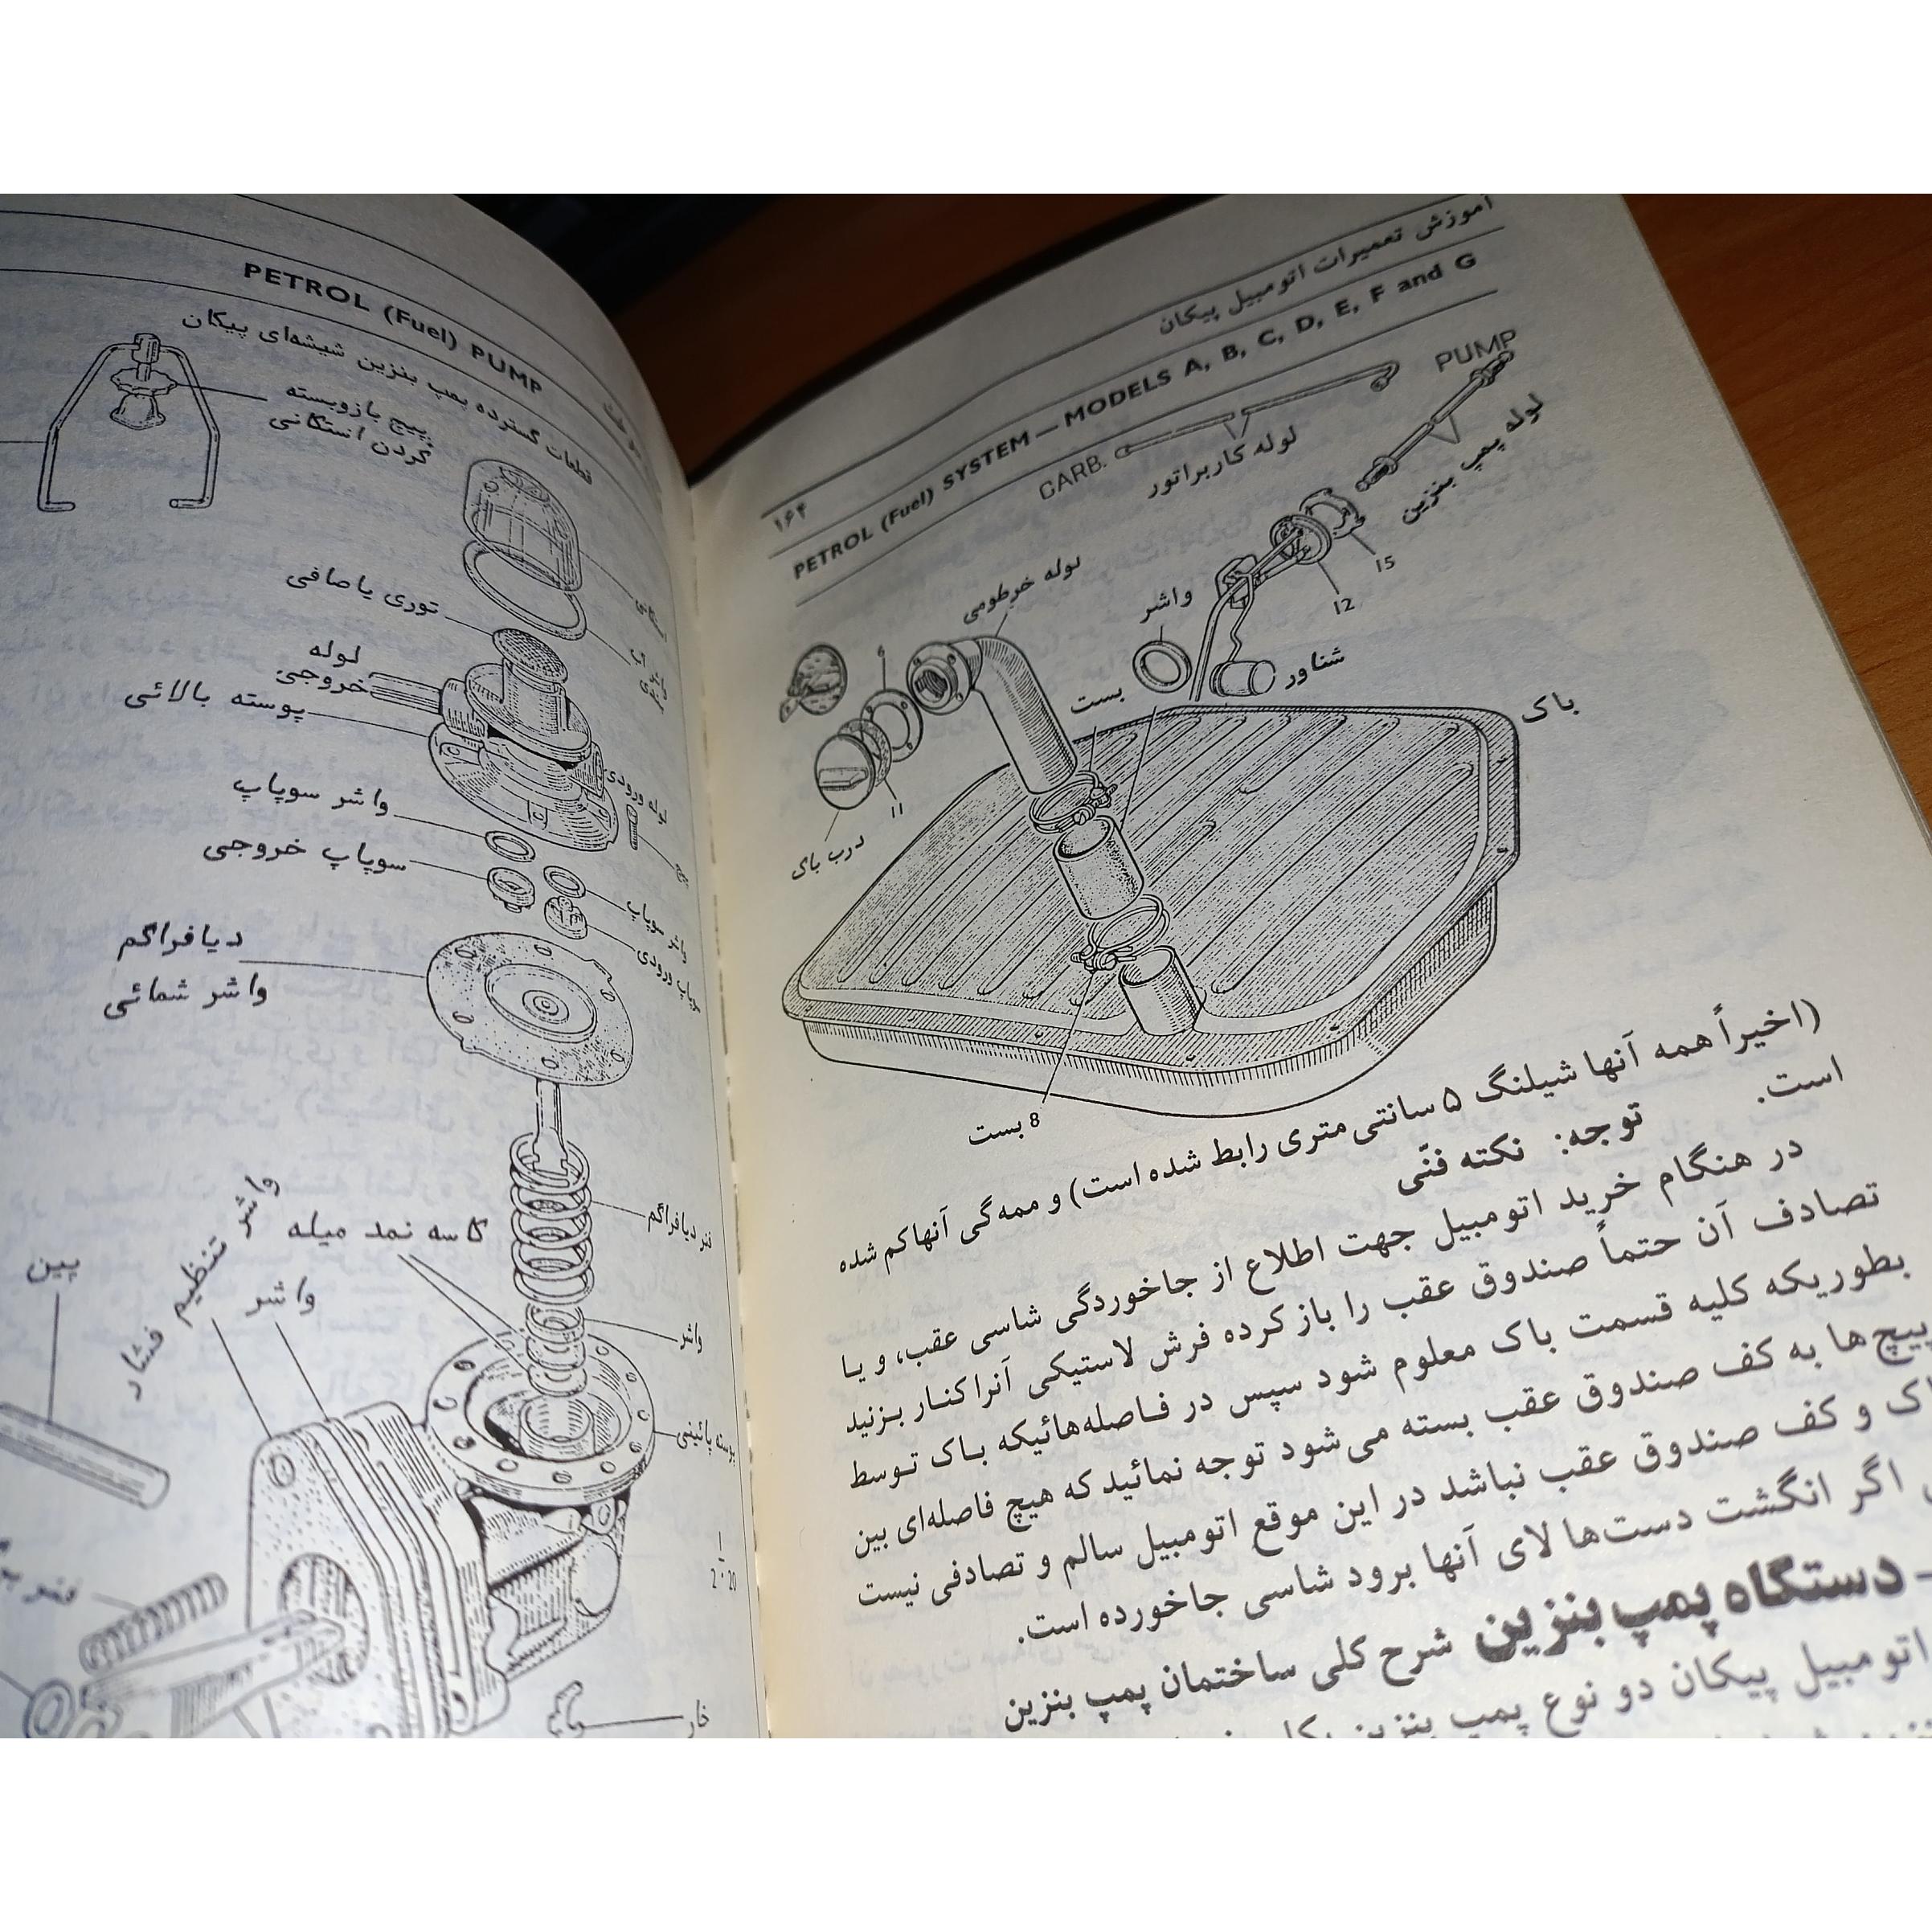 آموزش تعمیرات اتومبیل پیکان
۱۶۴
PETROL (Fuel) SYSTEM — MODELS A, B, C, D, E, F and G
PUMP
CARB.
لوله کاربراتور
لوله پمپ بنزین
15
12
لوله خرطومی
واشر
شناور
بست
باک
6
11
درب باک
8 بست
(اخیراً همه آنها شیلنگ ۵ سانتی متری رابط شده است) و ممه‌گی آنها کم شده
است.
توجه: نکته فنّی
در هنگام خرید اتومبیل جهت اطلاع از جاخوردگی شاسی عقب، و یا
تصادف آن حتماً صندوق عقب را باز کرده فرش لاستیکی آنرا کنار بزنید
بطوریکه کلیه قسمت باک معلوم شود سپس در فاصله‌هائیکه باک توسط
پیچ‌ها به کف صندوق عقب بسته می‌شود توجه نمائید که هیچ فاصله‌ای بین
و کف صندوق عقب نباشد در این موقع اتومبیل سالم و تصادفی نیست
اگر انگشت دست‌ها لای آنها برود شاسی جاخورده است.
- دستگاه پمپ بنزین شرح کلی ساختمان پمپ بنزین
اتومبیل پیکان دو نوع پمپ بنزین
PETROL (Fuel) PUMP
قطعات گسترده پمپ بنزین شیشه‌ای پیکان
پیچ بازوبسته
کردن استکانی
توری یا صافی
لوله
خروجی
پوسته بالائی
لوله ورودی
واشر سوپاپ
سوپاپ خروجی
واشر سوپاپ
ورودی
دیافراگم
واشر شمائی
فنر دیافراگم
واشر تنظیم فشار
کاسه نمد میله
پین
واشر
واشر
پوسته پائینی
خار